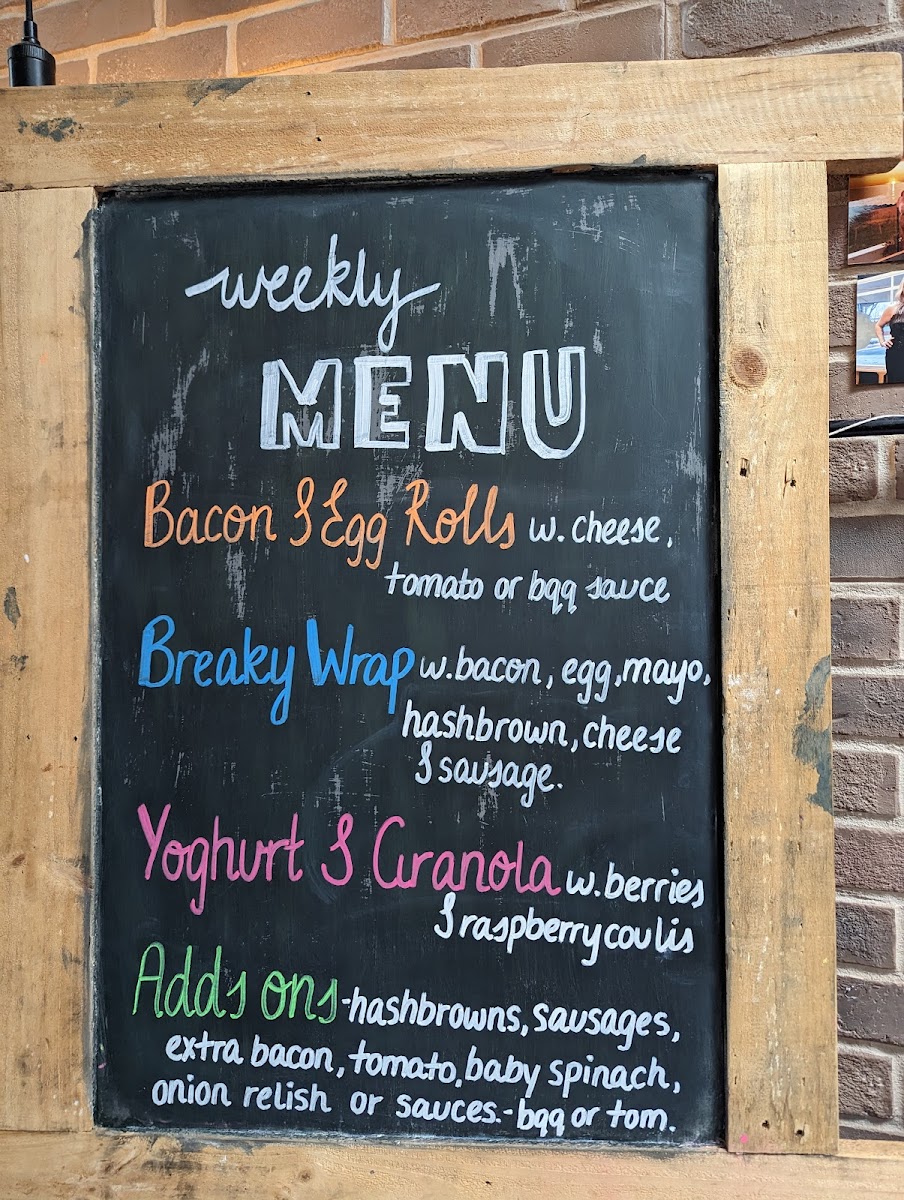 weekly
MENU
Bacon & Egg Rolls w. cheese,
tomato or bqq sauce
Breaky Wrap w. bacon, egg, mayo,
hashbrown, cheese
& sausage.
Yoghurt & Granola w. berries
& raspberry coulis
Adds ons - hashbrowns, sausages,
extra bacon, tomato, baby spinach,
onion relish or sauces. - bqq or tom.